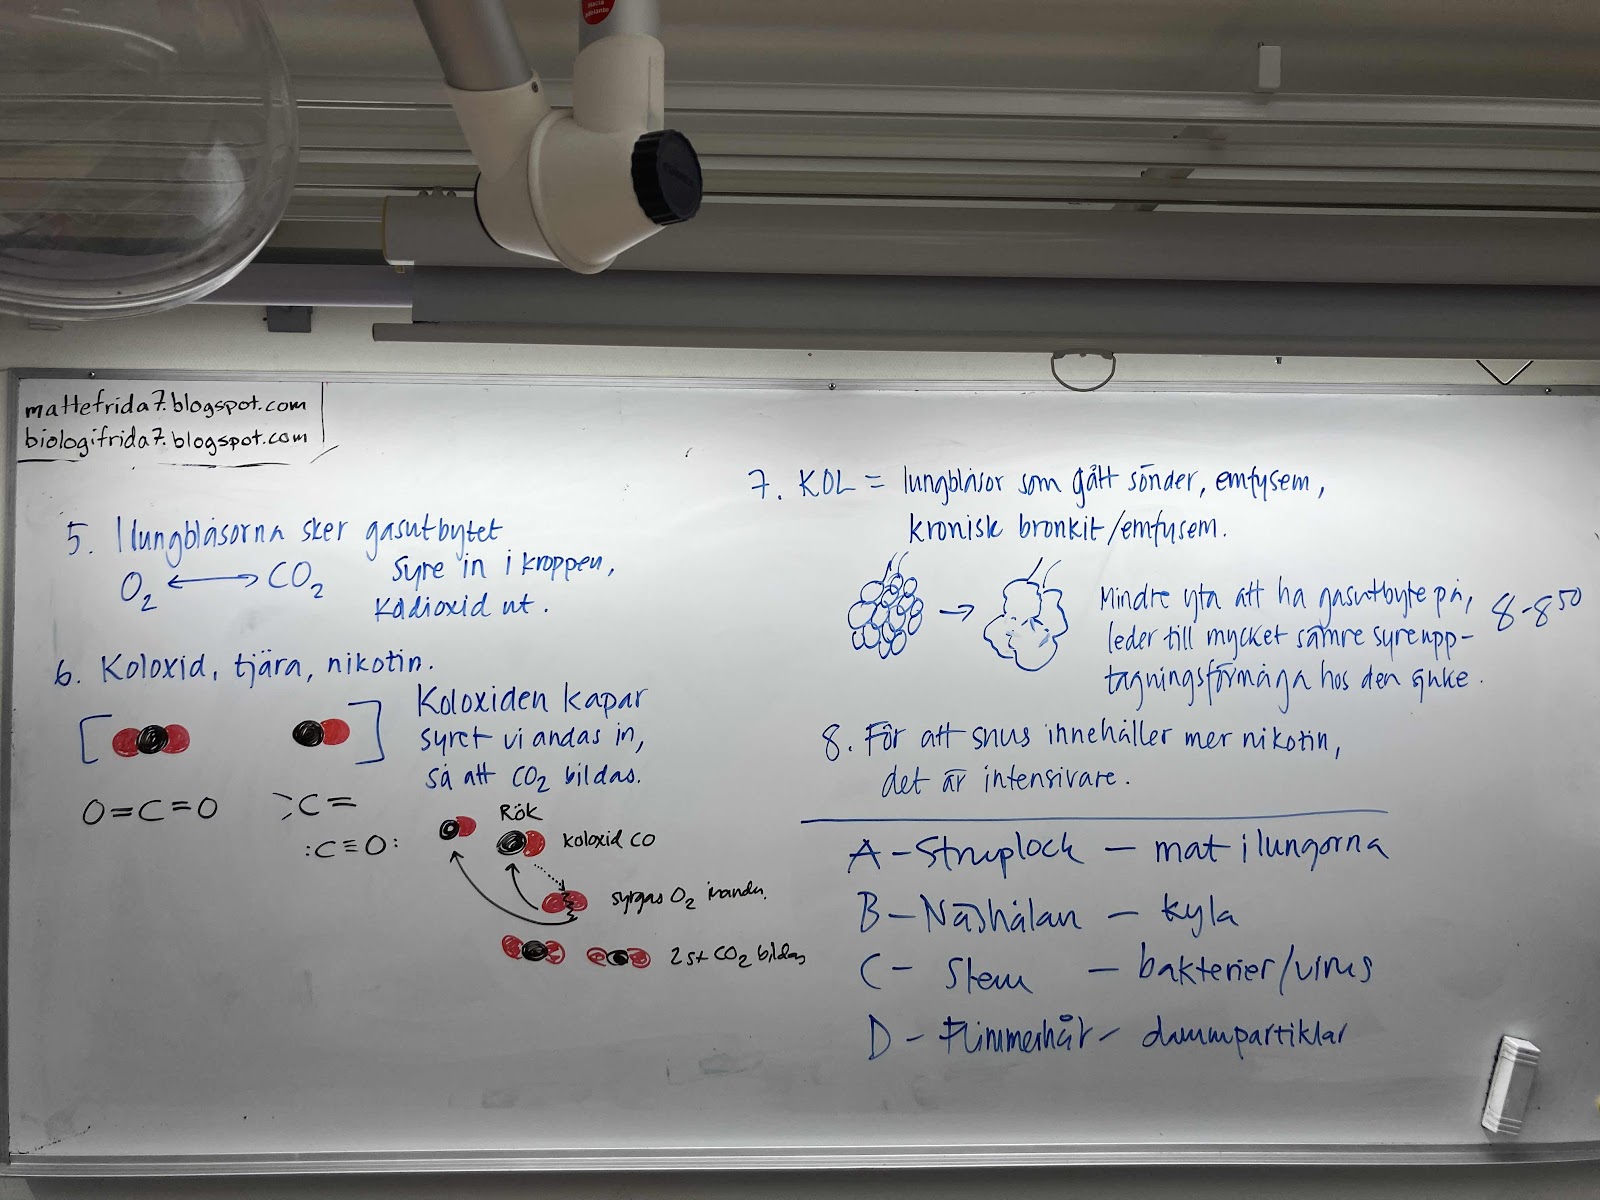 mattefrida7.blogspot.com
biologifrida7.blogspot.com
5. I lungblåsorna sker gasutbytet
O₂ ⟷ CO₂
Syre in i kroppen,
koldioxid ut.
6. Koloxid, tjära, nikotin.
Koloxiden kapar
syret vi andas in,
så att CO₂ bildas.
O=C=O
C=
:C≡O:
Rök
koloxid CO
syrgas O₂
2 st CO₂ bildas
7. KOL = lungblåsor som gått sönder, emfysem,
kronisk bronkit/emfysem.
Mindre yta att ha gasutbyte på,
leder till mycket sämre syreupp-
tagningsförmåga hos den sjuke.
8-8⁵⁰
8. För att snus innehåller mer nikotin,
det är intensivare.
A – Struplock – mat i lungorna
B – Näshålan – kyla
C – Slem – bakterier/virus
D – Flimmerhår – dammpartiklar